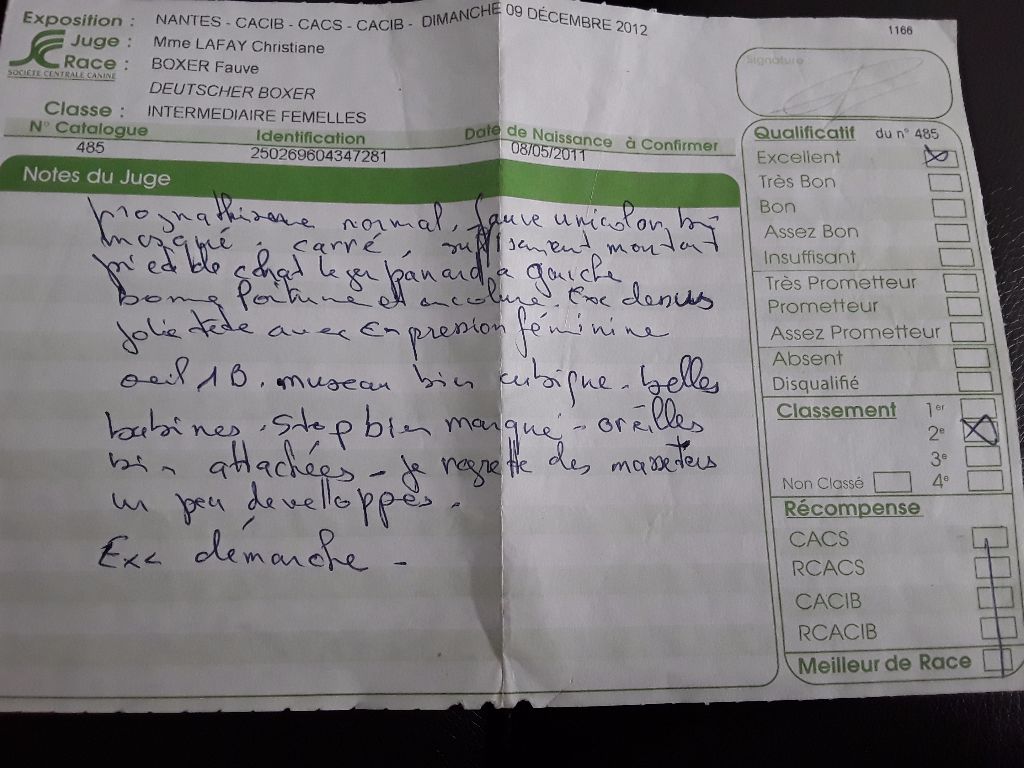 Exposition : NANTES - CACIB - CACS - CACIB - DIMANCHE 09 DÉCEMBRE 2012
1166
Juge : Mme LAFAY Christiane
Race : BOXER Fauve
SOCIÉTÉ CENTRALE CANINE
DEUTSCHER BOXER
Classe : INTERMEDIAIRE FEMELLES
N° Catalogue Identification Date de Naissance à Confirmer
485 250269604347281 08/05/2011
Notes du Juge
prognathisme normal, fauve unicolor bi-
masqué. carré. suffisamment montant
pied de chat leger pánard a gauche
bonne poitrine et encolure. Exc dessus
Jolie tete avec Expression féminine
oeil 1B. museau bien cubique. belles
babines. Stop bien marqué - oreilles
bien attachées - je regrette des masseters
un peu develloppés.
Exc démarche -
Signature
Qualificatif du n° 485
Excellent
Très Bon
Bon
Assez Bon
Insuffisant
Très Prometteur
Prometteur
Assez Prometteur
Absent
Disqualifié
Classement 1er
2e
3e
Non Classé 4e
Récompense
CACS
RCACS
CACIB
RCACIB
Meilleur de Race